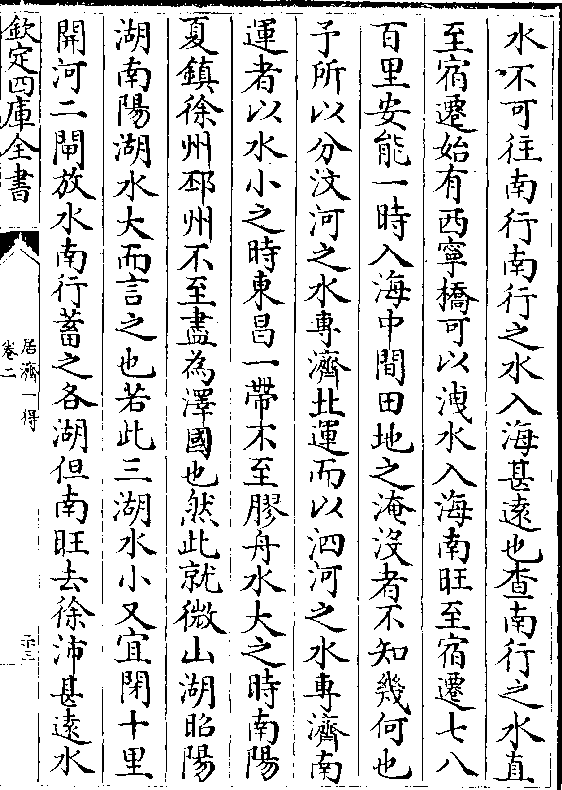 水不可往南行南行之水入海甚遠也查南行之水直
至宿遷始有西寧橋可以洩水入海南旺至宿遷七八
百里安能一時入海中間田地之淹沒者不知幾何也
予所以分汶河之水專濟北運而以泗河之水專濟南
運者以水小之時東昌一帶不至膠舟水大之時南陽
夏鎮徐州邳州不至盡為澤國也然此就微山湖昭陽
湖南陽湖水大而言之也若此三湖水小又宜閉十里
開河二閘放水南行蓄之各湖但南旺去徐沛甚遠水
欽定四庫全書
居濟一得
卷二